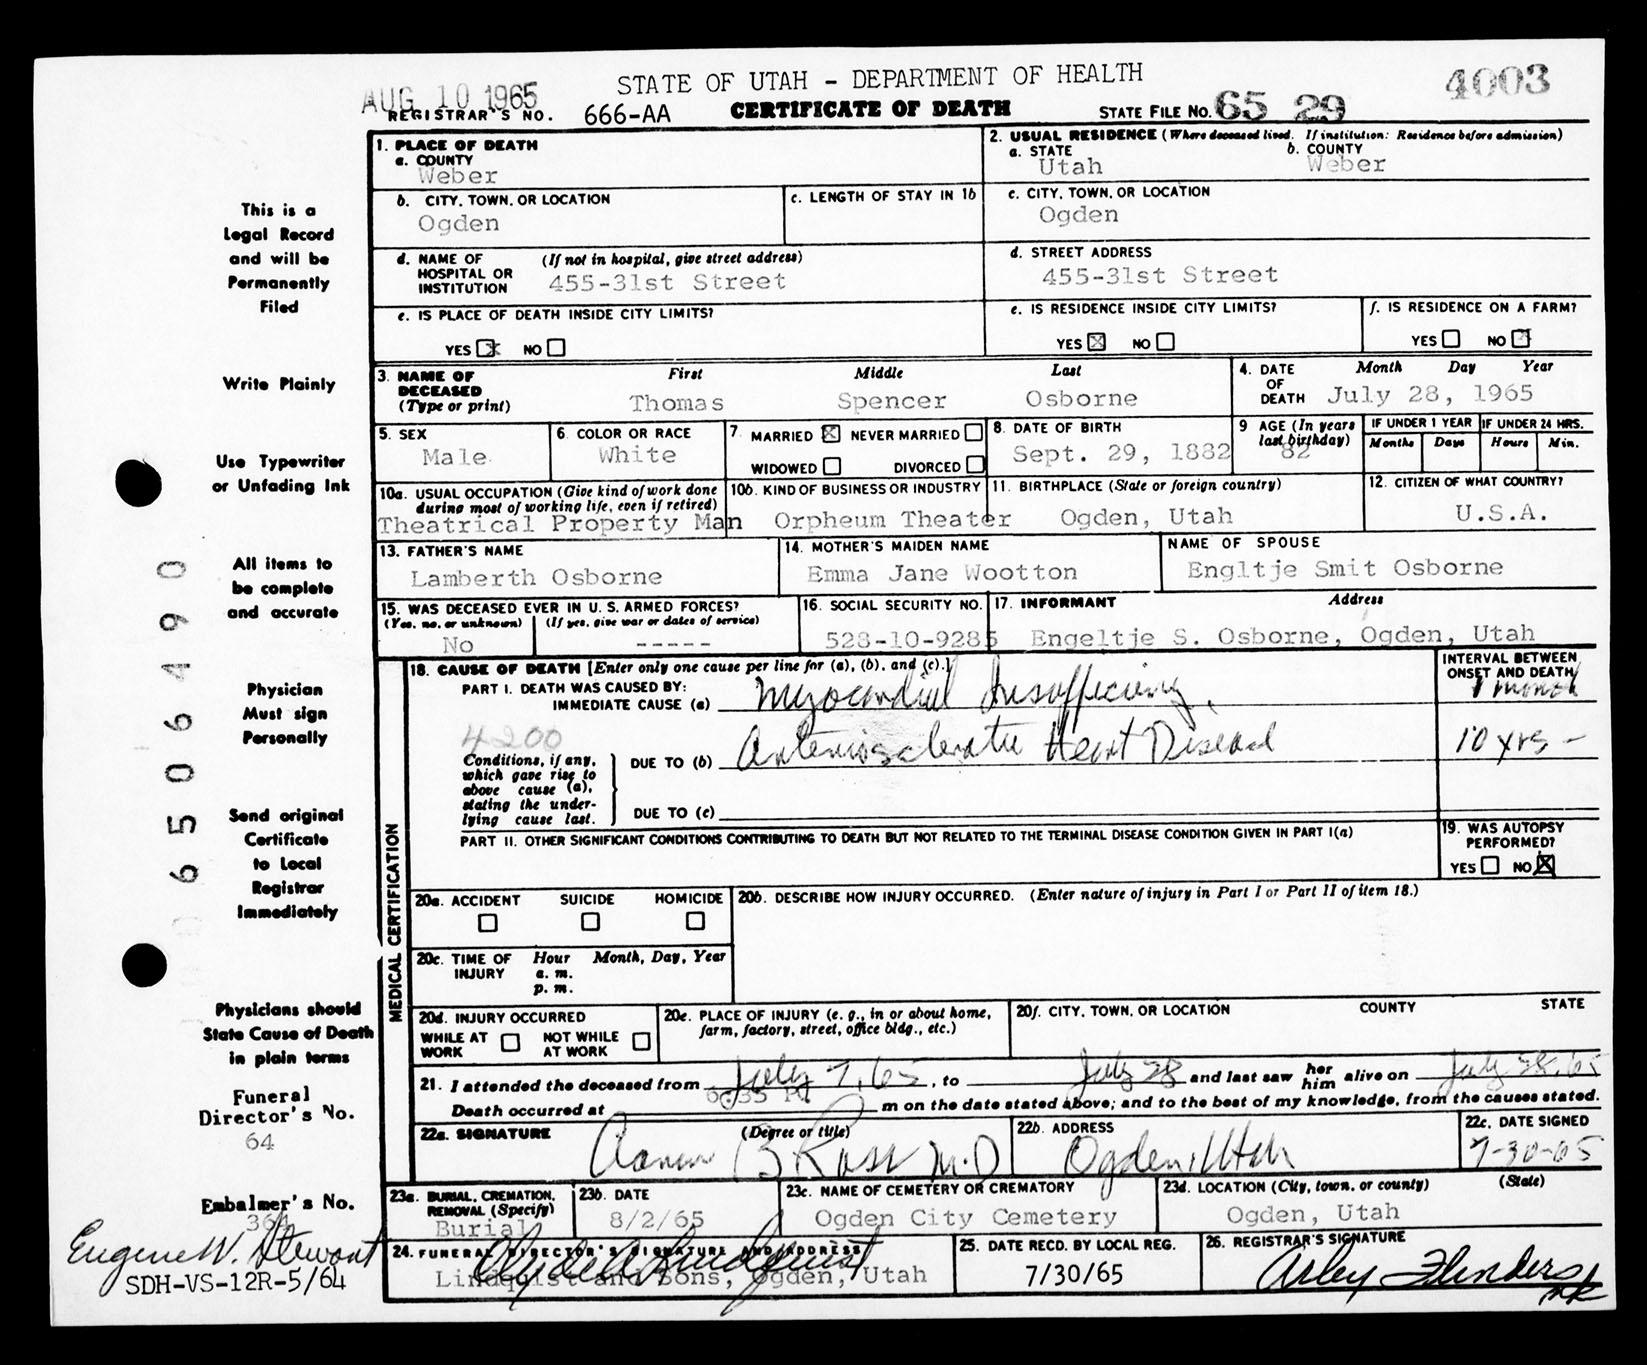 STATE OF UTAH - DEPARTMENT OF HEALTH
4003
AUG 10 1965
REGISTRAR'S NO. 666-AA
CERTIFICATE OF DEATH
STATE FILE NO. 65 29
1. PLACE OF DEATH
a. COUNTY
Weber
2. USUAL RESIDENCE (Where deceased lived. If institution: Residence before admission)
a. STATE
Utah
b. COUNTY
Weber
b. CITY, TOWN, OR LOCATION
Ogden
c. LENGTH OF STAY IN 1b
c. CITY, TOWN, OR LOCATION
Ogden
d. NAME OF HOSPITAL OR INSTITUTION
(If not in hospital, give street address)
455-31st Street
d. STREET ADDRESS
455-31st Street
e. IS PLACE OF DEATH INSIDE CITY LIMITS?
YES NO
e. IS RESIDENCE INSIDE CITY LIMITS?
YES NO
f. IS RESIDENCE ON A FARM?
YES NO
3. NAME OF DECEASED (Type or print)
First Middle Last
Thomas Spencer Osborne
4. DATE OF DEATH
Month Day Year
July 28, 1965
5. SEX
Male
6. COLOR OR RACE
White
7. MARRIED NEVER MARRIED
WIDOWED DIVORCED
8. DATE OF BIRTH
Sept. 29, 1882
9 AGE (In years last birthday)
82
IF UNDER 1 YEAR IF UNDER 24 HRS.
Months Days Hours Min.
10a. USUAL OCCUPATION (Give kind of work done during most of working life, even if retired)
Theatrical Property Man
10b. KIND OF BUSINESS OR INDUSTRY
Orpheum Theater
11. BIRTHPLACE (State or foreign country)
Ogden, Utah
12. CITIZEN OF WHAT COUNTRY?
U.S.A.
13. FATHER'S NAME
Lamberth Osborne
14. MOTHER'S MAIDEN NAME
Emma Jane Wootton
NAME OF SPOUSE
Engltje Smit Osborne
15. WAS DECEASED EVER IN U. S. ARMED FORCES?
(Yes, no, or unknown) (If yes, give war or dates of service)
No -----
16. SOCIAL SECURITY NO.
528-10-9285
17. INFORMANT Address
Engeltje S. Osborne, Ogden, Utah
18. CAUSE OF DEATH [Enter only one cause per line for (a), (b), and (c).]
PART I. DEATH WAS CAUSED BY:
IMMEDIATE CAUSE (a) Myocardial Insufficiency
INTERVAL BETWEEN ONSET AND DEATH
1 month
4200
Conditions, if any, which gave rise to above cause (a), stating the underlying cause last.
DUE TO (b) Arteriosclerotic Heart Disease
10 yrs -
DUE TO (c)
PART II. OTHER SIGNIFICANT CONDITIONS CONTRIBUTING TO DEATH BUT NOT RELATED TO THE TERMINAL DISEASE CONDITION GIVEN IN PART I(a)
19. WAS AUTOPSY PERFORMED?
YES NO
MEDICAL CERTIFICATION
20a. ACCIDENT SUICIDE HOMICIDE
20b. DESCRIBE HOW INJURY OCCURRED. (Enter nature of injury in Part I or Part II of item 18.)
20c. TIME OF INJURY Hour Month, Day, Year
a. m.
p. m.
20d. INJURY OCCURRED
WHILE AT WORK NOT WHILE AT WORK
20e. PLACE OF INJURY (e. g., in or about home, farm, factory, street, office bldg., etc.)
20f. CITY, TOWN, OR LOCATION COUNTY STATE
21. I attended the deceased from July 7, 65, to July 28 and last saw her him alive on July 28, 65
Death occurred at 6:35 P. m on the date stated above; and to the best of my knowledge, from the causes stated.
22a. SIGNATURE (Degree or title)
Aaron B Ross M.D
22b. ADDRESS
Ogden, Utah
22c. DATE SIGNED
7-30-65
23a. BURIAL, CREMATION, REMOVAL (Specify)
Burial
23b. DATE
8/2/65
23c. NAME OF CEMETERY OR CREMATORY
Ogden City Cemetery
23d. LOCATION (City, town, or county) (State)
Ogden, Utah
24. FUNERAL DIRECTOR'S SIGNATURE AND ADDRESS
Clyde A Lindquist
Lindquist and Sons, Ogden, Utah
25. DATE RECD. BY LOCAL REG.
7/30/65
26. REGISTRAR'S SIGNATURE
Arley Flinders
This is a
Legal Record
and will be
Permanently
Filed
Write Plainly
Use Typewriter
or Unfading Ink
All items to
be complete
and accurate
Physician
Must sign
Personally
Send original
Certificate
to Local
Registrar
Immediately
Physicians should
State Cause of Death
in plain terms
Funeral
Director's No.
64
Embalmer's No.
364
Eugene W. Stewart
SDH-VS-12R-5/64
6506490